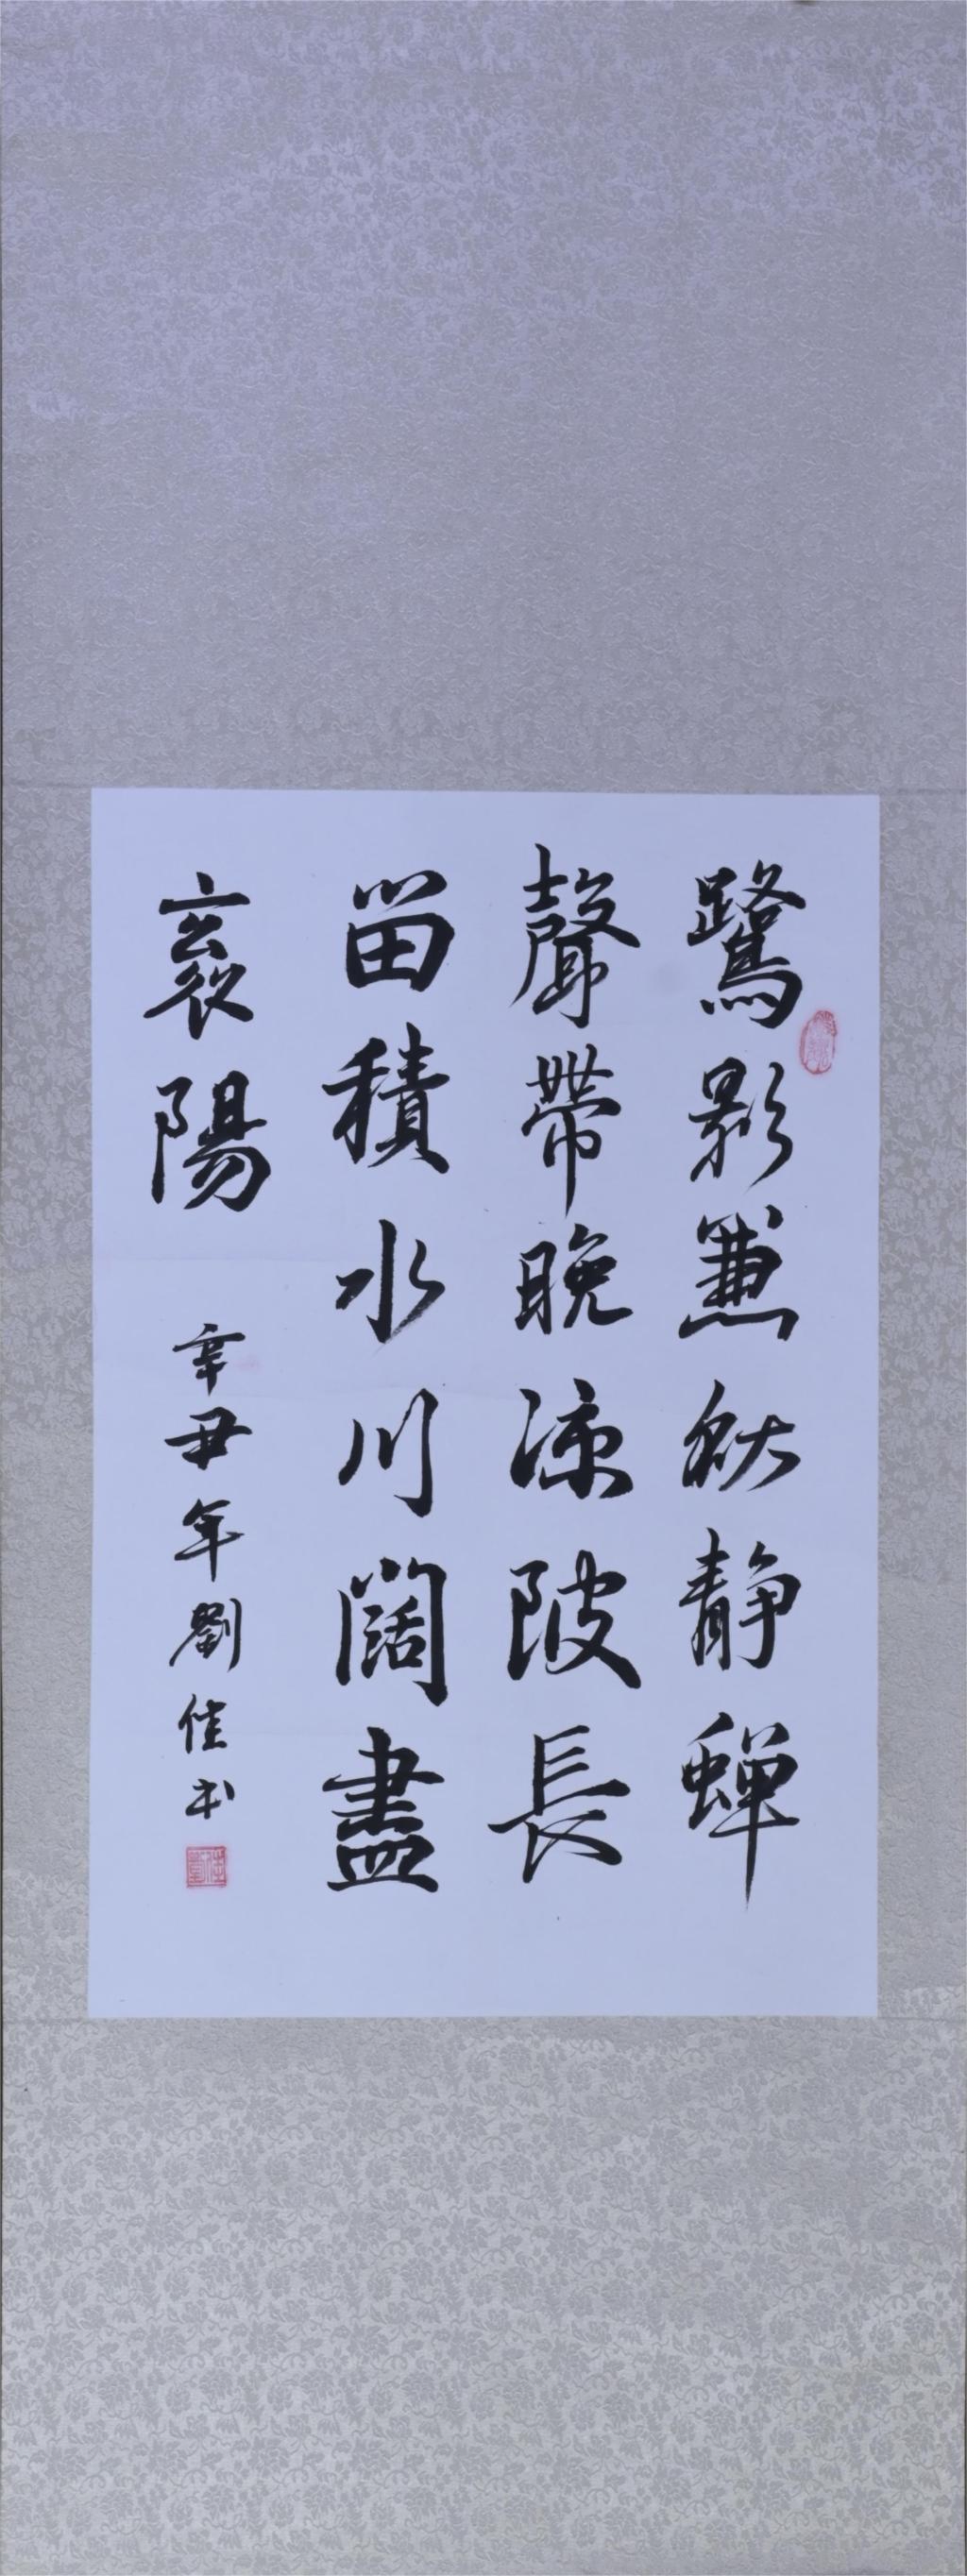 鷺影蒹秋靜蟬
聲帶晚涼陂長
留積水川闊盡
衰陽
辛丑年劉佳书